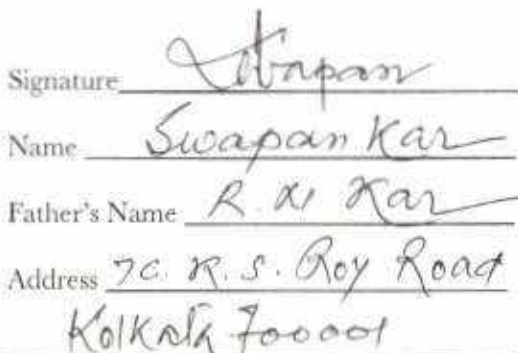 Signature Swapan
Name Swapan Kar
Father's Name R. N. Kar
Address 7C. K. S. Roy Road
Kolkata 700001